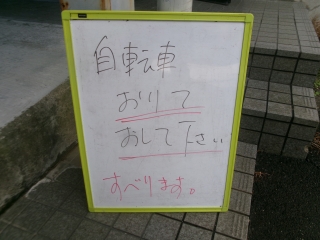 自転車
おりて
おして下さい
すべります。